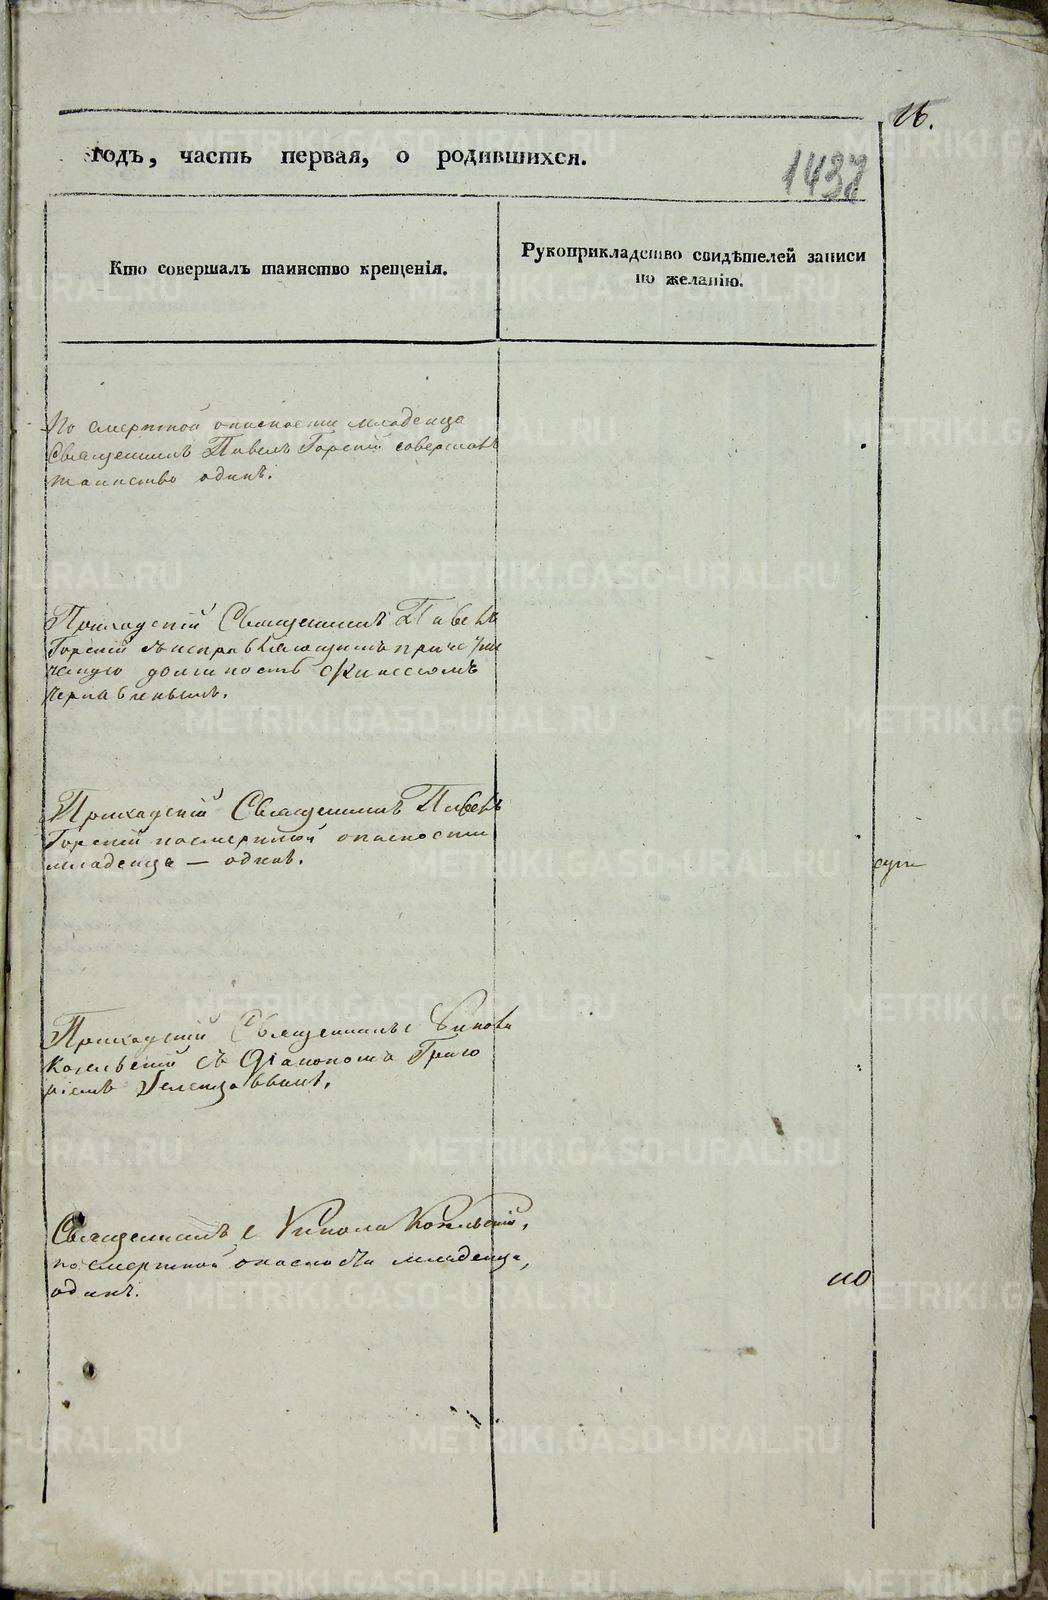 16.
годъ, часть первая, о родившихся.
1437
Кто совершалъ таинство крещенія.
Рукоприкладство свидѣтелей записи
по желанію.
По смертной опасности младенца
Священникъ Павелъ Горскій совершалъ
таинство одинъ.
Приходскій Священникъ Павелъ
Горскій съ исправляющимъ причетни
ческую должность
Приходскій Священникъ Павелъ
Горскій по смертной опасности
младенца — одинъ.
Приходскій Священникъ
съ Діакономъ Григо
ріемъ
Священникъ Никола
по смертной опасности младенца,
одинъ.
METRIKI.GASO-URAL.RU